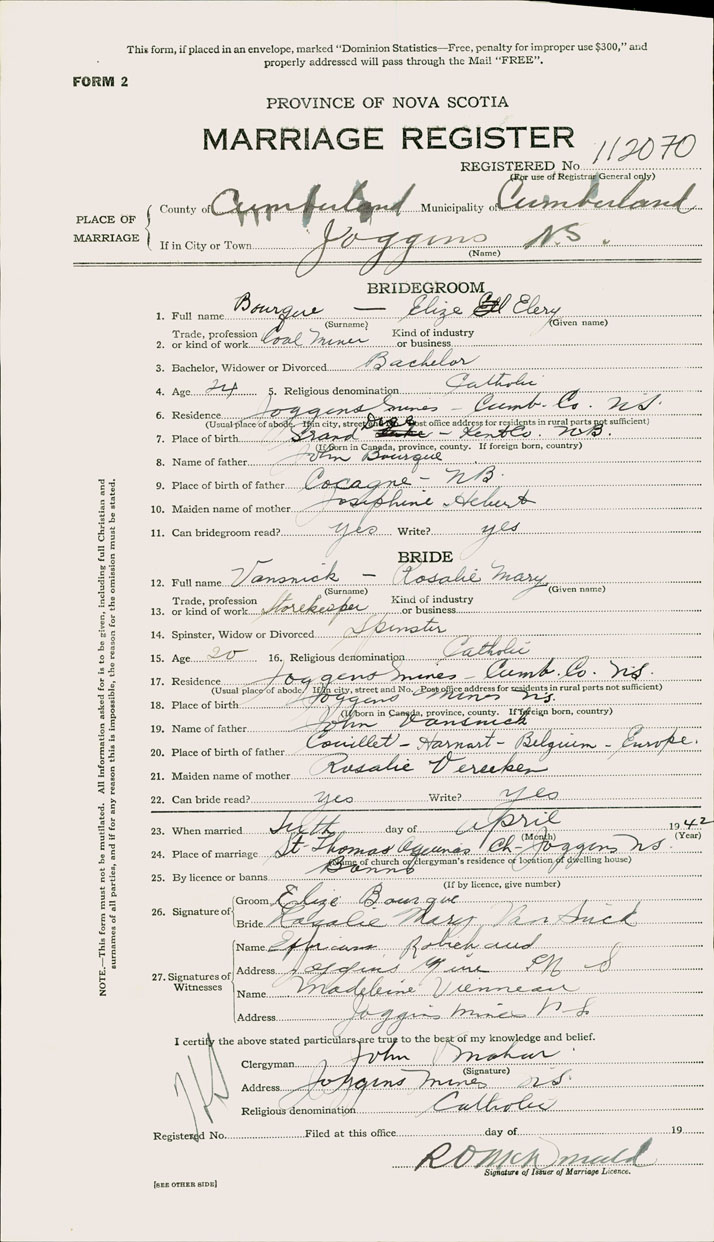 This form, if placed in an envelope, marked "Dominion Statistics—Free, penalty for improper use $300," and
properly addressed will pass through the Mail "FREE".
FORM 2
PROVINCE OF NOVA SCOTIA
MARRIAGE REGISTER
REGISTERED No. 112070
(For use of Registrar General only)
PLACE OF MARRIAGE
County of Cumberland Municipality of Cumberland
If in City or Town Joggins N.S.
(Name)
BRIDEGROOM
1. Full name Bourque — Elize Elery
(Surname) (Given name)
2. Trade, profession or kind of work Coal Miner Kind of industry or business
3. Bachelor, Widower or Divorced Bachelor
4. Age 24 5. Religious denomination Catholic
6. Residence Joggins Mines - Cumb. Co. N.S.
(Usual place of abode. If in city, street and No. Post office address for residents in rural parts not sufficient)
7. Place of birth Grand Digue - Kent Co N.B.
(If born in Canada, province, county. If foreign born, country)
8. Name of father John Bourque
9. Place of birth of father Cocagne - N.B.
10. Maiden name of mother Josiphine Hebert
11. Can bridegroom read? yes Write? yes
BRIDE
12. Full name Vansnick — Rosalie Mary
(Surname) (Given name)
13. Trade, profession or kind of work Storekeeper Kind of industry or business
14. Spinster, Widow or Divorced Spinster
15. Age 20 16. Religious denomination Catholic
17. Residence Joggins Mines - Cumb. Co. N.S.
(Usual place of abode. If in city, street and No. Post office address for residents in rural parts not sufficient)
18. Place of birth Joggins Mines N.S.
(If born in Canada, province, county. If foreign born, country)
19. Name of father John Vansnick
20. Place of birth of father Couillet - Harnart - Belgium - Europe.
21. Maiden name of mother Rosalie Vereeken
22. Can bride read? yes Write? yes
23. When married Sixth day of April 1942
(Month) (Year)
24. Place of marriage St. Thomas Ch- Joggins N.S.
(Name of church or clergyman's residence or location of dwelling house)
25. By licence or banns Banns
(If by licence, give number)
26. Signature of
Groom Elize Bourque
Bride Rosalie Mary VanSnick
27. Signatures of Witnesses
Name Robichaud
Address Joggins Mine N S
Name Madeleine Vienneau
Address Joggins Mines N S
I certify the above stated particulars are true to the best of my knowledge and belief.
Clergyman John
(Signature)
Address Joggins Mines N.S.
Religious denomination Catholic
Registered No. Filed at this office day of 19
Signature of Issuer of Marriage Licence.
[SEE OTHER SIDE]
NOTE.—This form must not be mutilated. All information asked for is to be given, including full Christian and
surnames of all parties, and if for any reason this is impossible, the reason for the omission must be stated.